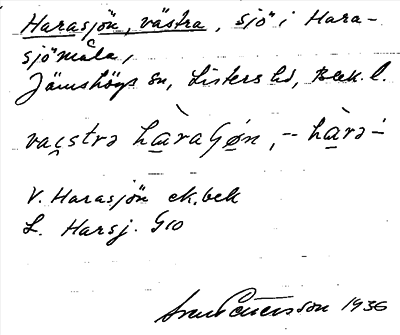 Harasjön, västra, sjö i Hara-
sjömåla,
Jämshögs sn, Listers hd, Blek. l.
vacstrə hàraɧøn, -- hàrə-
V. Harasjön ek. bek
L. Harsj. G10
Sven Petersson 1936